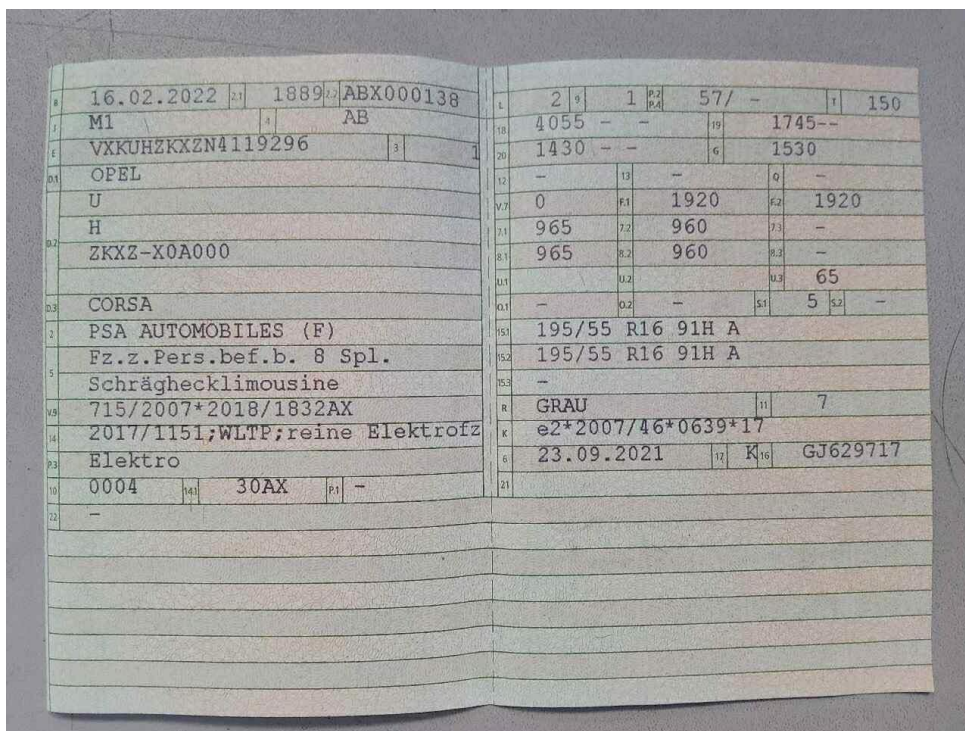 B 16.02.2022 2.1 1889 2.2 ABX000138
J M1 4 AB
E VXKUHZKXZN4119296 3 1
D.1 OPEL
U
H
D.2
ZKXZ-X0A000
D.3 CORSA
2 PSA AUTOMOBILES (F)
Fz.z.Pers.bef.b. 8 Spl.
5
Schrägheck­limousine
V.9 715/2007*2018/1832AX
14 2017/1151;WLTP;reine Elektrofz
P.3 Elektro
10 0004 14.1 30AX P.1 -
22 -
L 2 9 1 P.2 P.4 57/ - T 150
18 4055 - - 19 1745--
20 1430 - - G 1530
12 - 13 - Q -
V.7 0 F.1 1920 F.2 1920
7.1 965 7.2 960 7.3 -
8.1 965 8.2 960 8.3 -
U.1 U.2 U.3 65
O.1 - O.2 - S.1 5 S.2 -
15.1 195/55 R16 91H A
15.2 195/55 R16 91H A
15.3 -
R GRAU 11 7
K e2*2007/46*0639*17
6 23.09.2021 17 K 16 GJ629717
21